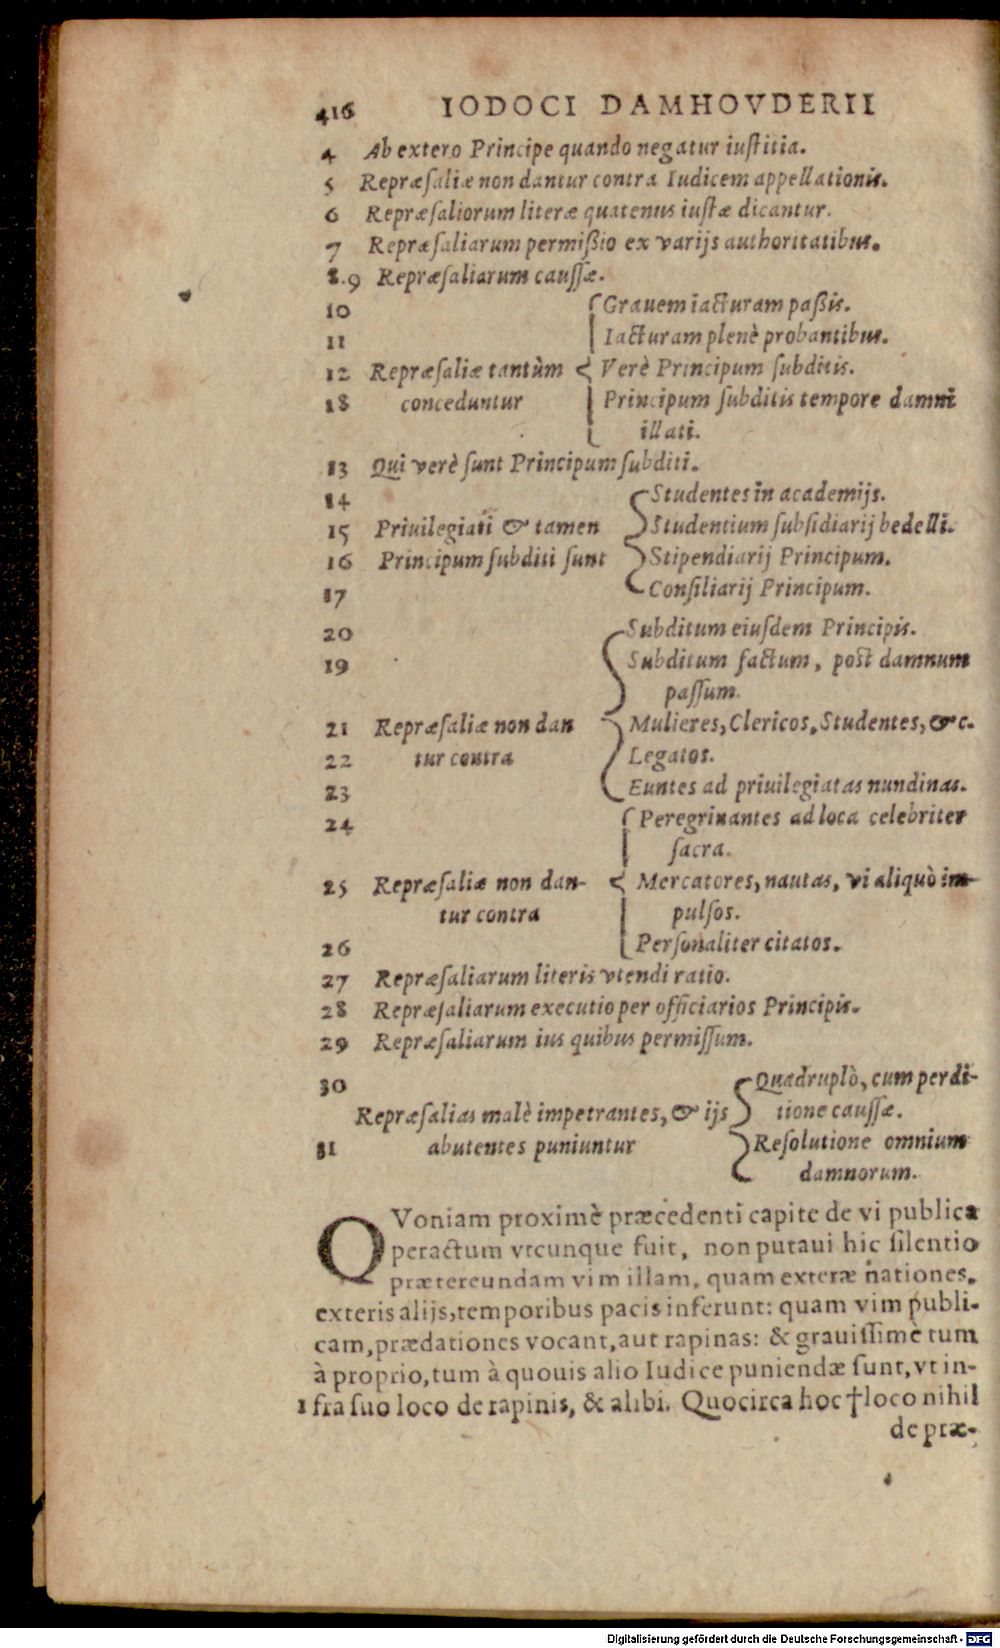 416 IODOCI DAMHOVDERII
4 Ab extero Principe quando negatur iustitia.
5 Repræsaliæ non dantur contra Iudicem appellationis.
6 Repræsaliorum literæ quatenus iustæ dicantur.
7 Repræsaliarum permißio ex varijs authoritatibus.
8.9 Repræsaliarum caussæ.
10 Grauem iacturam paßis.
11 Iacturam plenè probantibus.
12 Repræsaliæ tantùm Verè Principum subditis.
18 conceduntur Principum subditis tempore damni
illati.
13 Qui verè sunt Principum subditi.
14 Studentes in academijs.
15 Priuilegiati & tamen Studentium subsidiarij bedelli.
16 Principum subditi sunt Stipendiarij Principum.
17 Consiliarij Principum.
20 Subditum eiusdem Principis.
19 Subditum factum, post damnum
passum.
21 Repræsaliæ non dan Mulieres, Clericos, Studentes, &c.
22 tur contra Legatos.
23 Euntes ad priuilegiatas nundinas.
24 Peregrinantes ad loca celebriter
sacra.
25 Repræsaliæ non dan- Mercatores, nautas, vi aliquò im-
tur contra pulsos.
26 Personaliter citatos.
27 Repræsaliarum literis vtendi ratio.
28 Repræsaliarum executio per officiarios Principis.
29 Repræsaliarum ius quibus permissum.
30 Quadruplò, cum perdi-
Repræsalias malè impetrantes, & ijs tione caussæ.
31 abutentes puniuntur Resolutione omnium
damnorum.
QVoniam proximè præcedenti capite de vi publica
peractum vtcunque fuit, non putaui hic silentio
prætereundam vim illam, quam exteræ nationes,
exteris alijs, temporibus pacis inferunt: quam vim publi-
cam, prædationes vocant, aut rapinas: & grauissimè tum
à proprio, tum à quouis alio Iudice puniendæ sunt, vt in-
1 fra suo loco de rapinis, & alibi. Quocirca hoc † loco nihil
de præ-
Digitalisierung gefördert durch die Deutsche Forschungsgemeinschaft - DFG